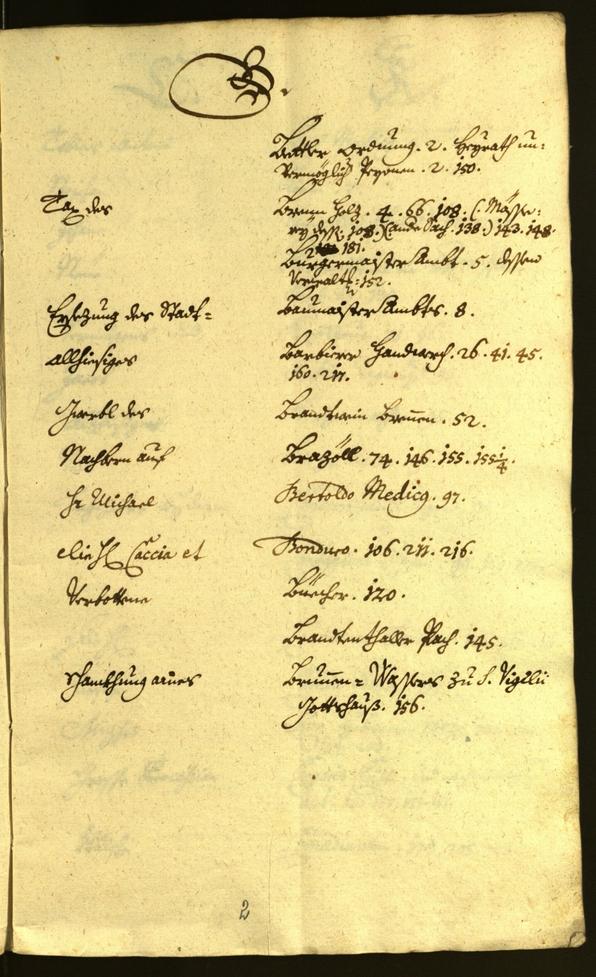 B.
Bettler Ordnung. 2. Heyrath un:
Vermöglich Persohnen. 2. 150.
Tax des Brenn Holz. 4. 66. 108. (: Mässe:
rey dess: 108.) 138.) 143. 148.
181.
Burgermaister Ambt. 5. dessen
Verwalt: 152.
Ersezung des Statt= Baumaister Ambtes. 8.
allhiesiges Barbierer Handwerch. 26. 41. 45.
160. 217.
des Brandtwein Brennen. 52.
Nachbern auf Brazöll. 74. 146. 155. 155¼.
Hr Michael Bertoldo Medicq. 97.
Caccia et Bonduro. 106. 211. 216.
Verbottene Büecher. 120.
Brandtenthaller Pach. 145.
Schankhung aines Brunnen= Wassers zu S. Vigilii
Gottshauß. 156.
2